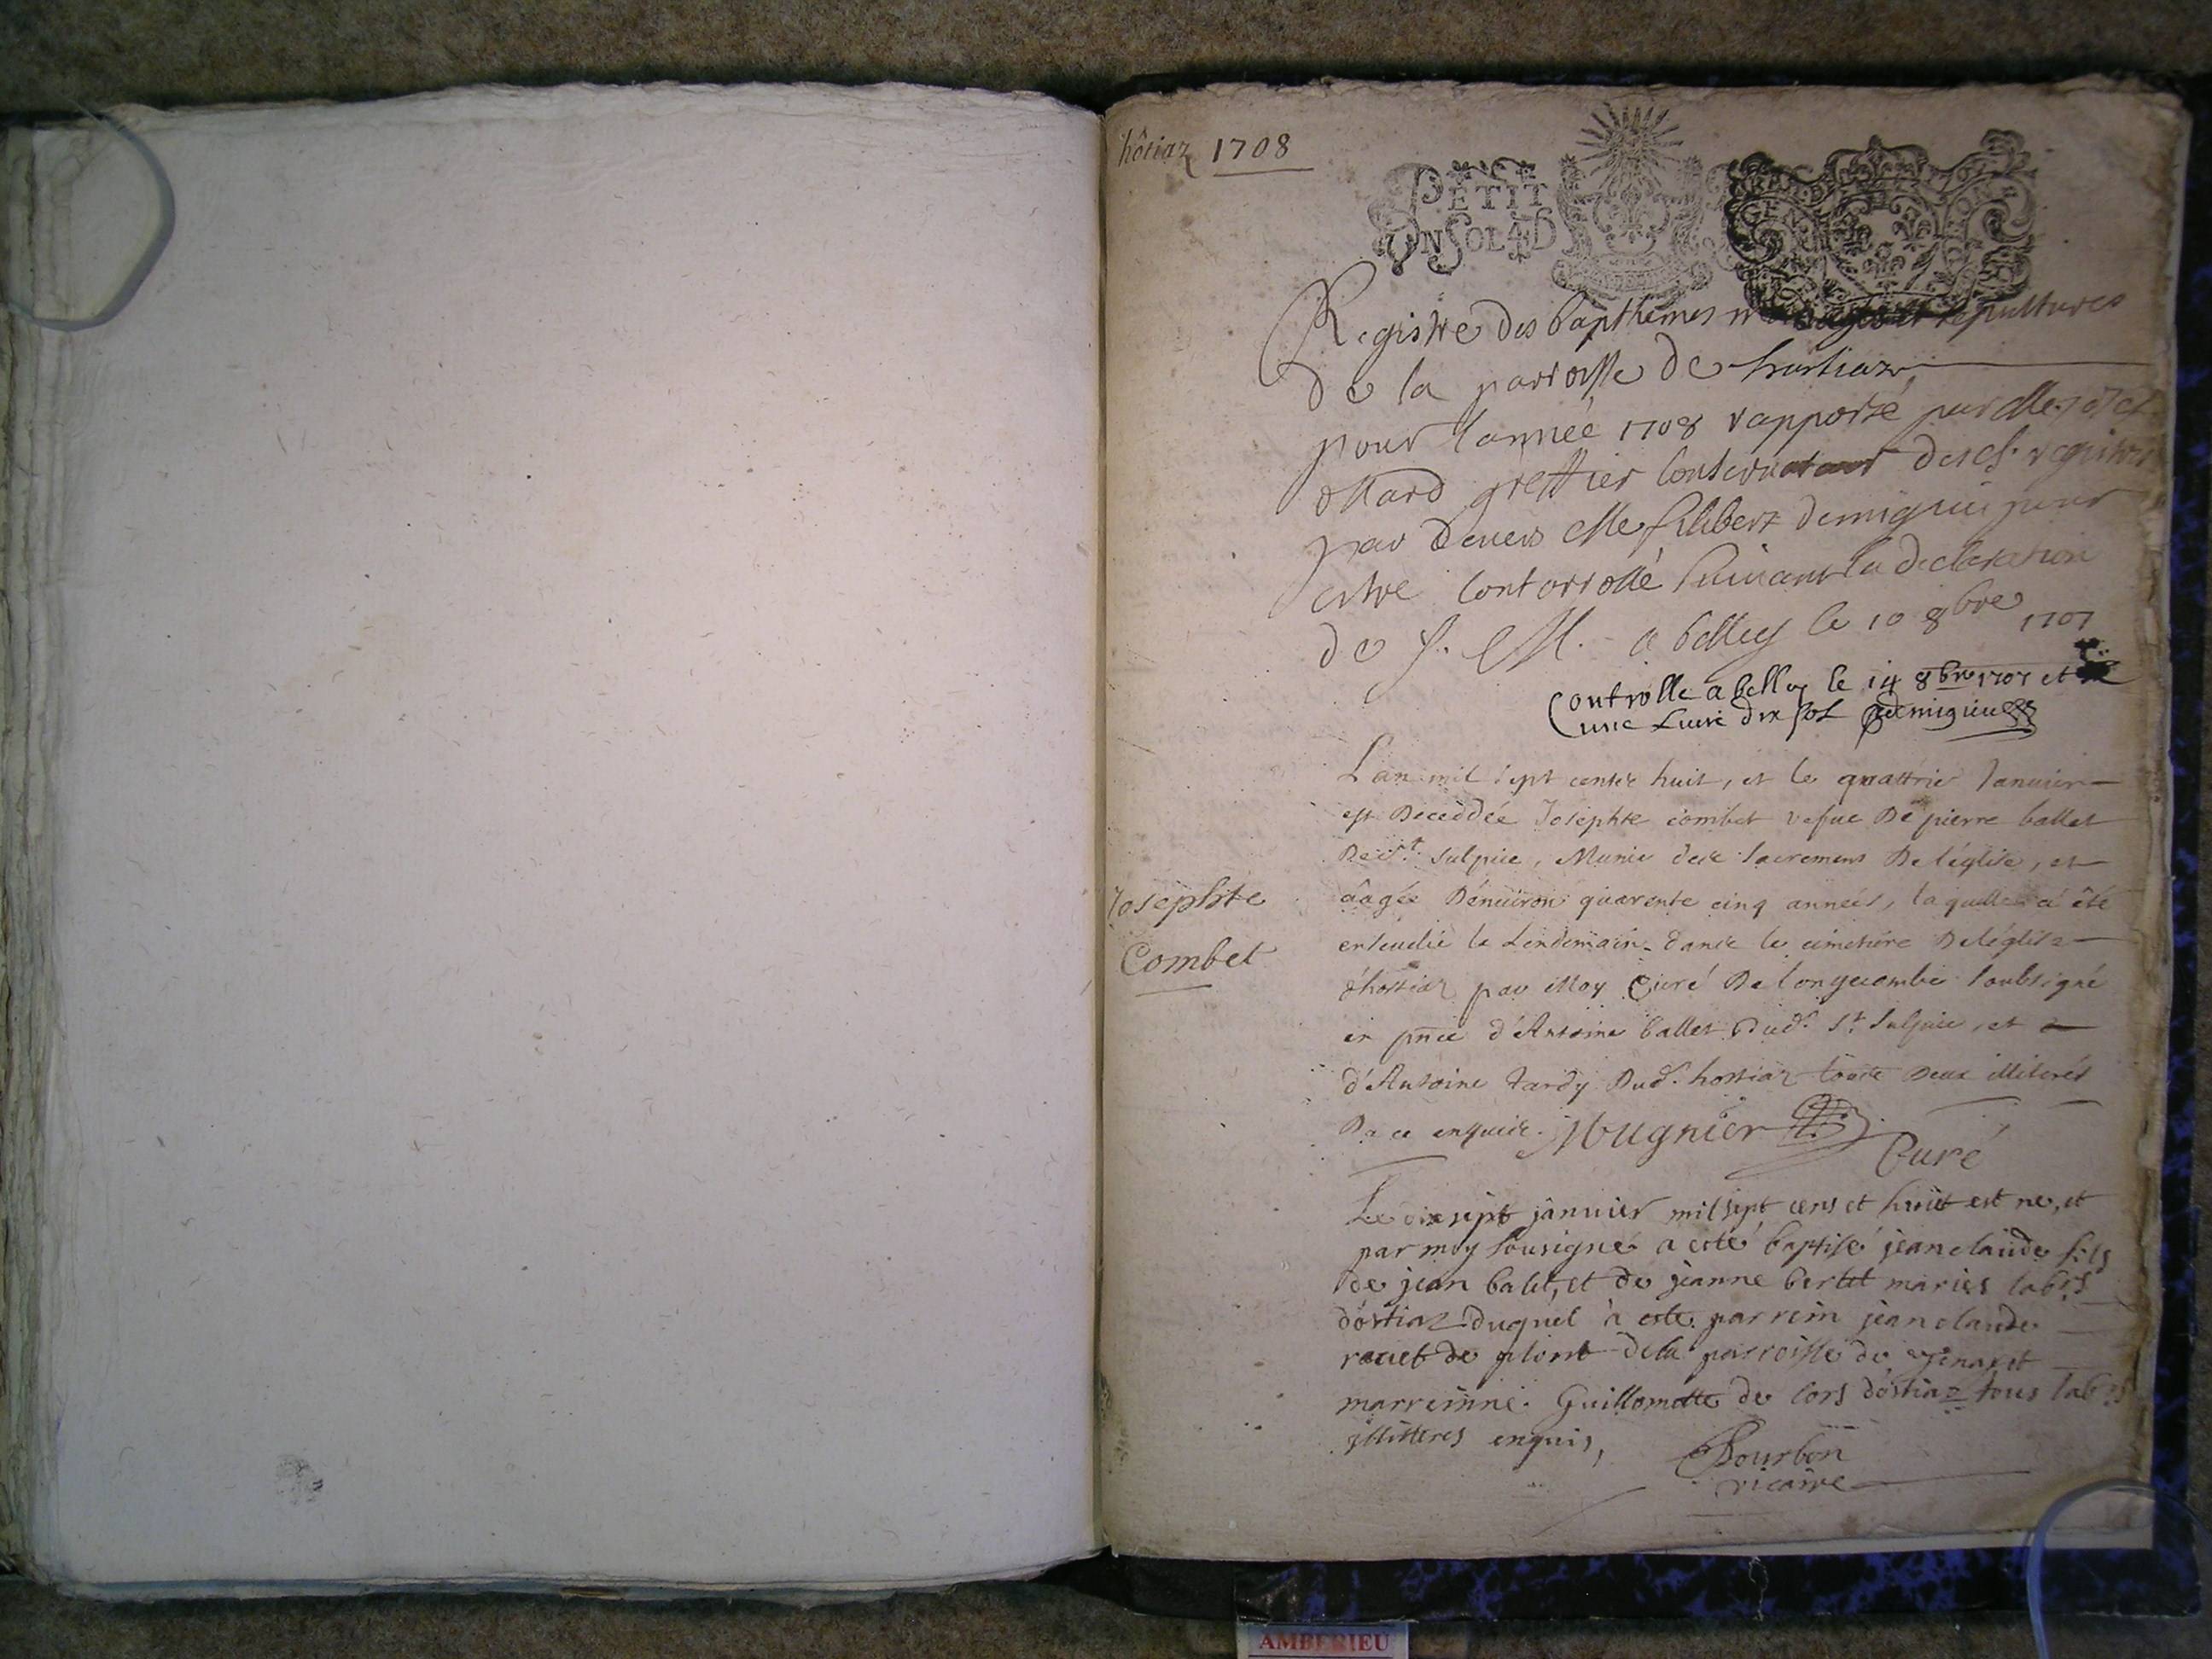 hôtiaz 1708
PETIT
UN SOL 4 D
GEN
Registre des bapthêmes mariages et sepultures
de la parroisse de hostiaz
pour l'année 1708 rapporté par Me
greffier Conservateur desd. registres
par devers Me filibert demigieu pour
estre Contorrollé suivant la declaration
de S. M. a belley le 10 8bre 1707
Controlle a belley le 14 8bre 1707 et
une Livre dix sol demigieu
L'an mil sept centz huit, et le quattrie Januier
est Deceddée Josephte combet vefue De pierre ballet
De St Sulpice, Munie desc sacremens De l'église, et
aâgée D'enuiron quarente cinq années, laquelle a été
enseuelie le Lendemain danse le cimetiére De l'église
d'hostiaz par Moy Curé De longecombe soubsigné
en pnce d'Antoine ballet Dud. St Sulpice, et
d'Antoine tardy Dud. hostiaz touts Deux illiterés
De ce enquise. Mugnier
Curé
Josephte
Combet
Le dixsept januier mil sept cens et huit est ne, et
par moy sousigné a esté baptisé jean claude fils
de jean balet, et de jeanne bertet mariés labrs
d'ostiaz duquel a este parrein jean claude
rauet de plont dela parroisse de
marreinne Guillomette de lors d'ostiaz tous labrs
jllitteres enquis,
Bourbon
vicaire
AMBERIEU